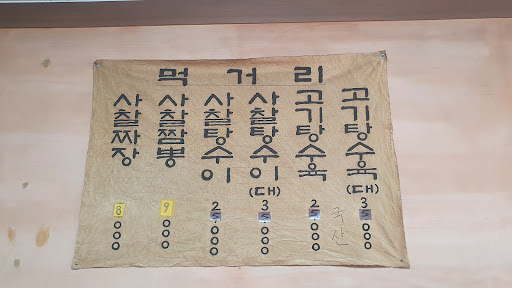 먹거리
사찰짜장 8000
사찰짬뽕 9000
사찰탕수이 25000
사찰탕수이(대) 35000
고기탕수육 25000
국산
고기탕수육(대) 35000